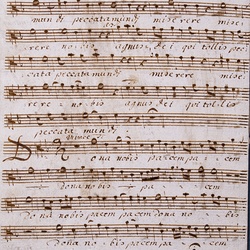 mundi peccata mundi miserere mise
rere nobis agnus dei qui tollis pec
cata peccata mundi miserere mise
rere nobis agnus dei qui tollis
peccata mundi
Dona nobis pacem pacem
Dona nobis pacem
Dona nobis pacem pacem Dona nobis
Dona nobis pacem pacem